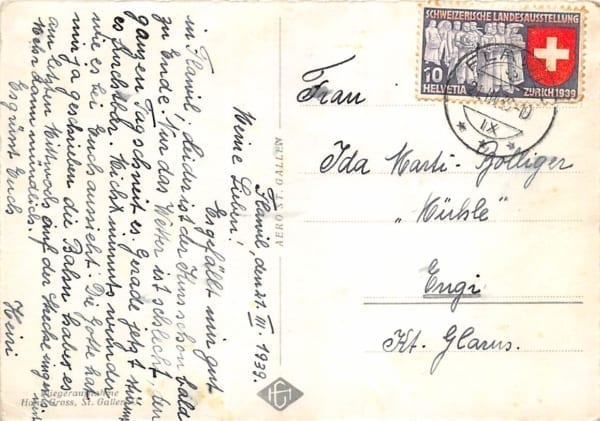 Flawil, den 21. III. 1939.
Meine Lieben!
Es gefällt mir gut
in Flawil; leider ist der Kurs schon bald
zu Ende. Nur das Wetter ist schlecht, den
ganzen Tag schneit es. Gerade jetzt
es furchtbar. Mich nimmts wunder
wie es bei Euch aussieht. Die Gotte hat
mir ja geschrieben die Bahn habe es
am letzten Mittwoch auf der Strecke
Mehr dann mündlich.
Es grüsst Euch
Heini
Fliegeraufnahme
Hans Gross, St. Gallen
AERO ST. GALLEN
SCHWEIZERISCHE LANDESAUSSTELLUNG
10
HELVETIA
ZÜRICH 1939
IX
Frau
Ida Marti-Bolliger
„Mühle"
Engi
Kt. Glarus.